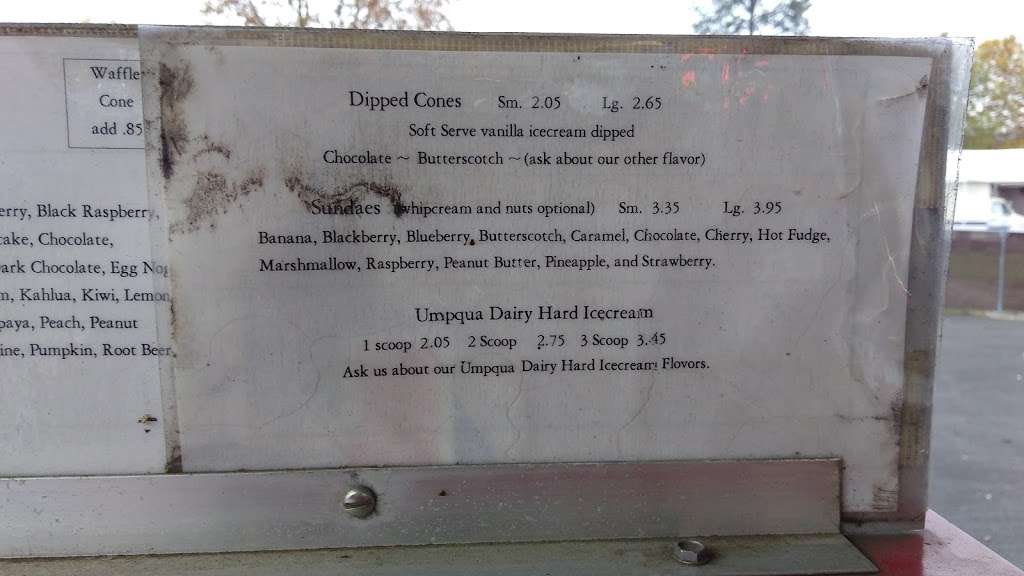 Waffle
Cone
add .85
erry, Black Raspberry,
cake, Chocolate,
Dark Chocolate, Egg Nog
m, Kahlua, Kiwi, Lemon
paya, Peach, Peanut
ine, Pumpkin, Root Beer,
Dipped Cones Sm. 2.05 Lg. 2.65
Soft Serve vanilla icecream dipped
Chocolate ~ Butterscotch ~ (ask about our other flavor)
Sundaes (whipcream and nuts optional) Sm. 3.35 Lg. 3.95
Banana, Blackberry, Blueberry, Butterscotch, Caramel, Chocolate, Cherry, Hot Fudge,
Marshmallow, Raspberry, Peanut Butter, Pineapple, and Strawberry.
Umpqua Dairy Hard Icecream
1 scoop 2.05 2 Scoop 2.75 3 Scoop 3.45
Ask us about our Umpqua Dairy Hard Icecream Flovors.